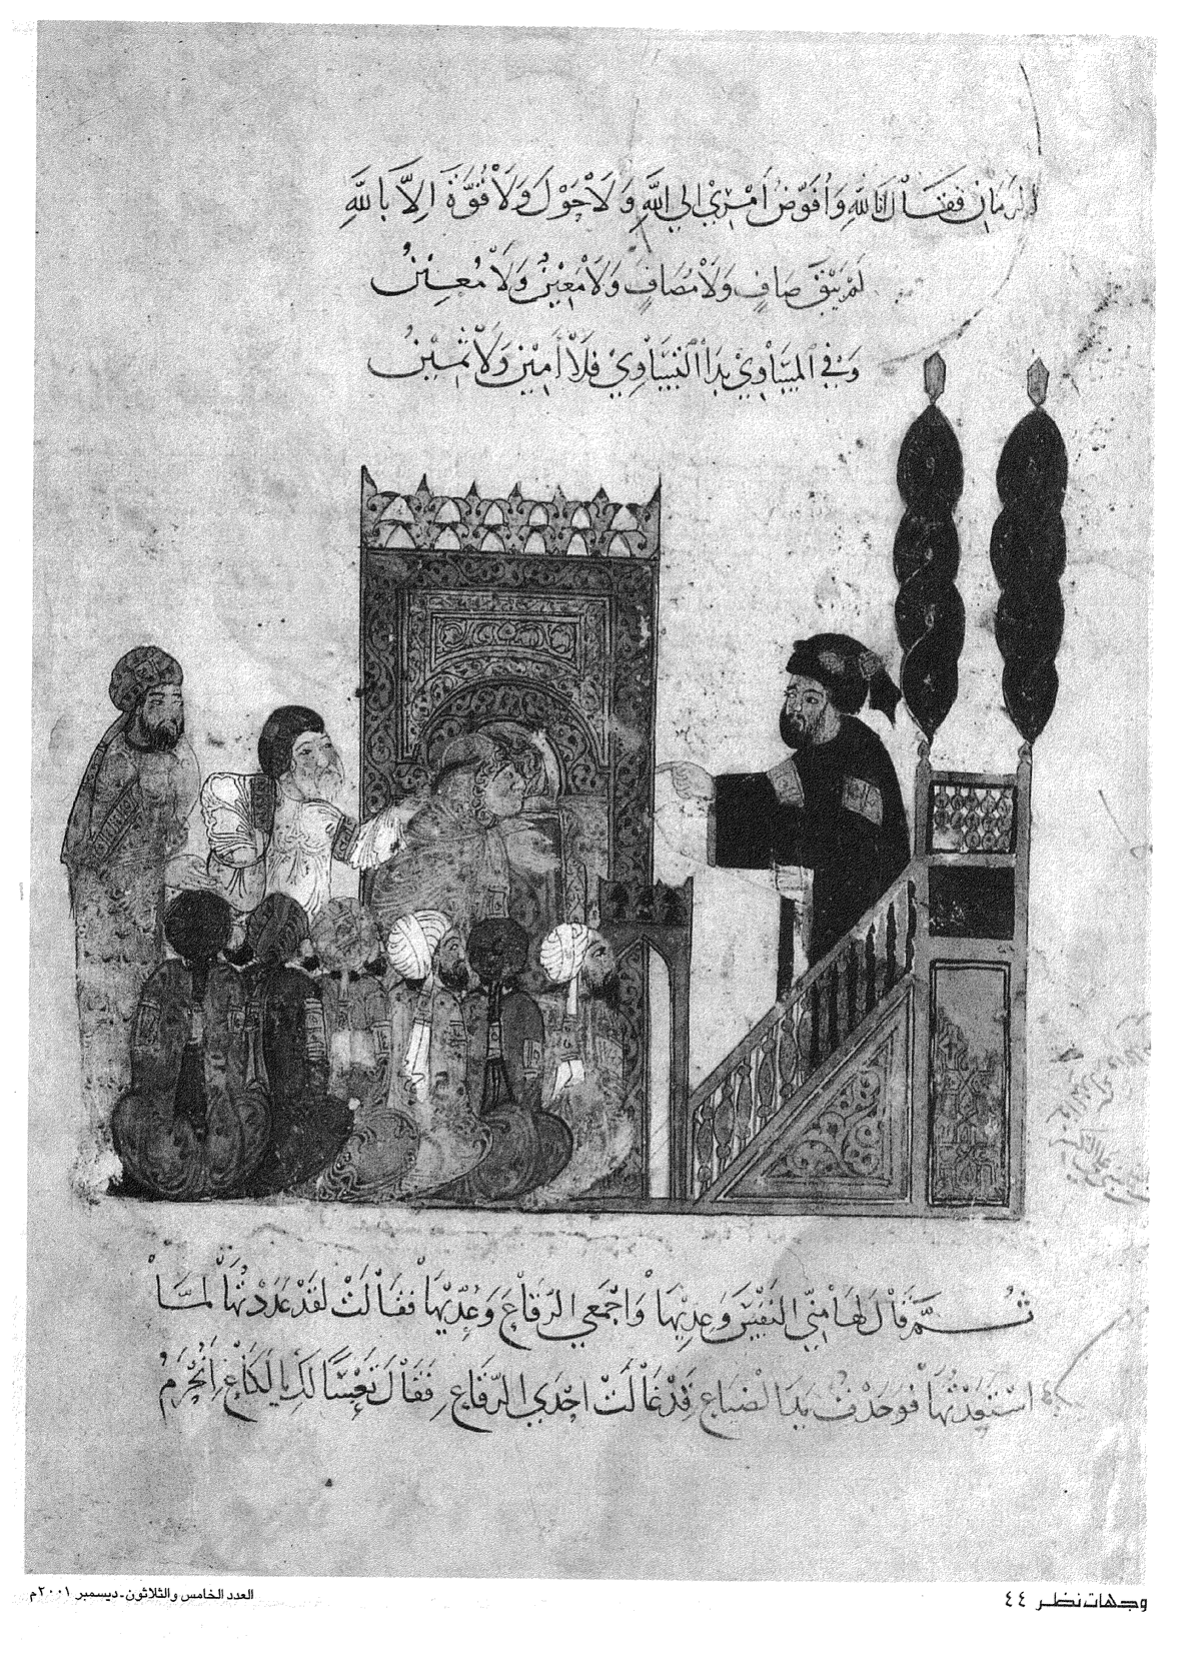 الزمان فقال انا لله وَأُفَوِّضُ أَمْرِي إلى اللهِ وَلَا حَوْلَ وَلَا قُوَّةَ إِلَّا بِاللهِ
لَمْ يَبْقَ صَافٍ وَلَا مُصَافٍ وَلَا مَعِينٌ وَلَا مُعِينُ
وَفِي المَسَاوِي بَدَا التَّسَاوِي فَلَا أَمِينٌ وَلَا ثَمِينُ
ثُمَّ قَالَ لَهَا مَنِّي النَّفْسَ وَعِدِيهَا وَاجْمَعِي الرِّقَاعَ وَعُدِّيهَا فَقَالَتْ لَقَدْ عَدَدْتُهَا لَمَّا
اسْتَعَدْتُهَا فَوَجَدْتُ يَدَ الضَّيَاعِ قَدْ غَالَتْ إِحْدَى الرِّقَاعِ فَقَالَ تَعْسًا لَكِ يَا لَكَاعِ أَنُحْرَمُ
وجهات نظر ٤٤
العدد الخامس والثلاثون - ديسمبر ٢٠٠١م